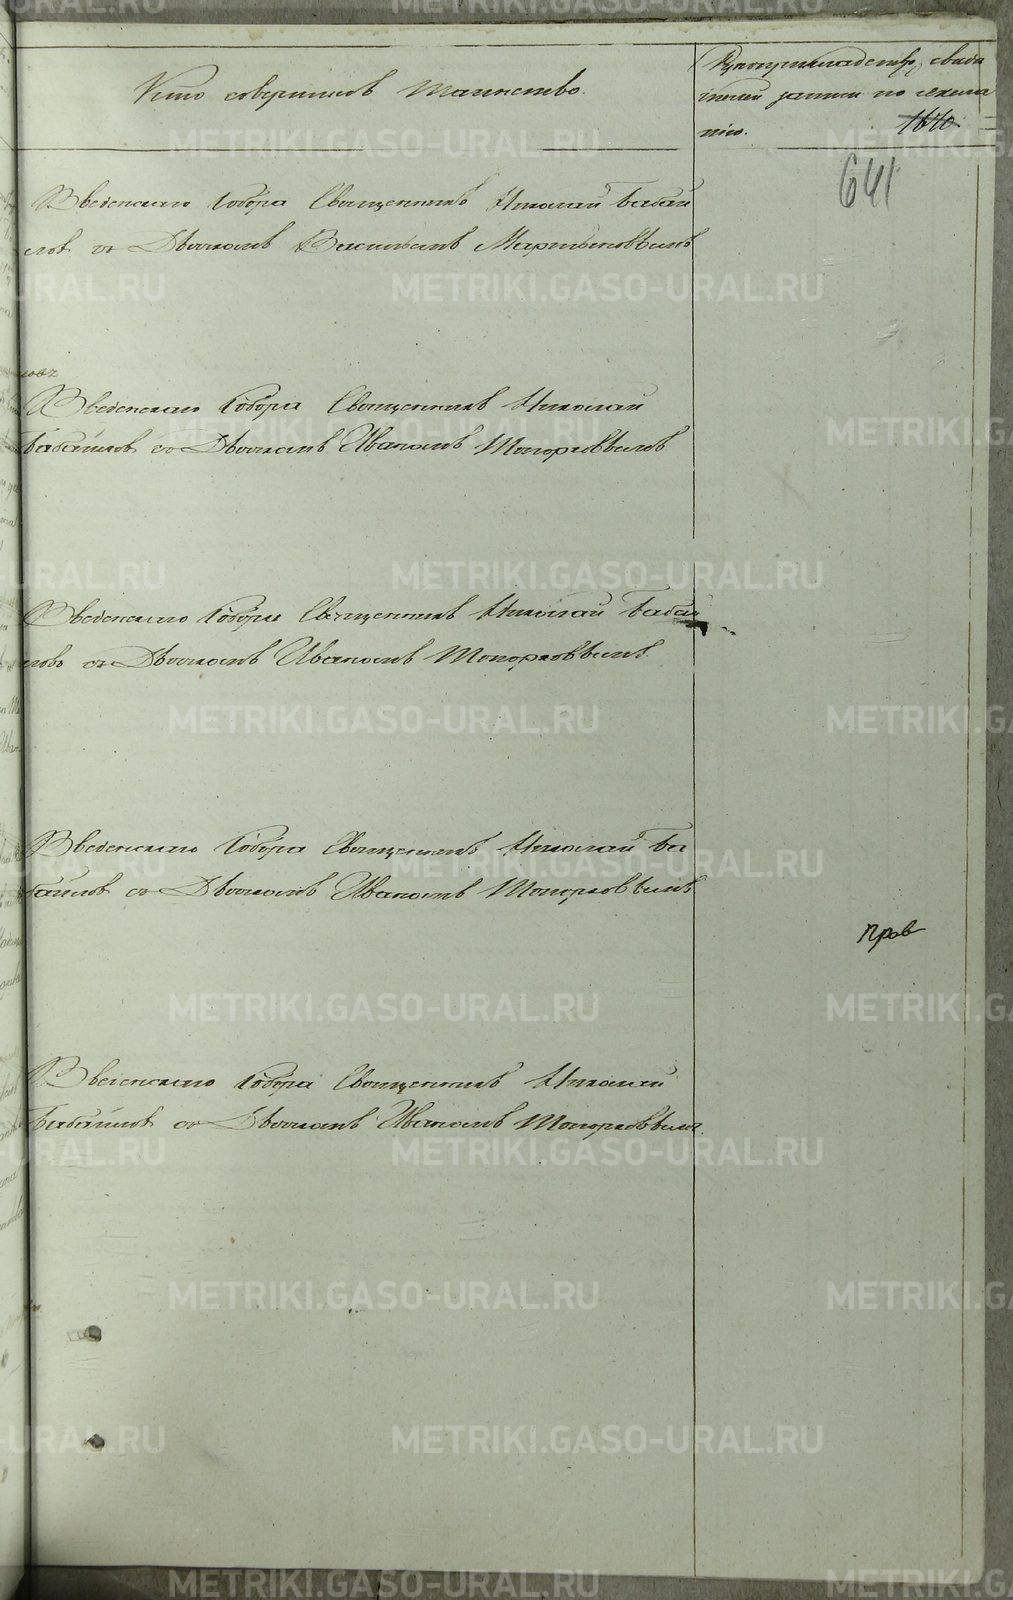 Кто совершилъ Таинство.
Рукоприкладство свиде
телей записи по желан
ію.
1640.
641
Введенскаго Собора Священникъ Николай Бабай
ловъ съ Дьячкомъ Василіемъ Мартыновымъ
Введенскаго Собора Священникъ Николай
Бабайловъ съ Дьячкомъ Иваномъ Топорковымъ
Введенскаго Собора Священникъ Николай Бабай
ловъ съ Дьячкомъ Иваномъ Топорковымъ.
Введенскаго Собора Священникъ Николай Ба
байловъ съ Дьячкомъ Иваномъ Топорковымъ
прав
Введенскаго Собора Священникъ Николай
Бабайловъ съ Дьячкомъ Иваномъ Топорковымъ.
METRIKI.GASO-URAL.RU